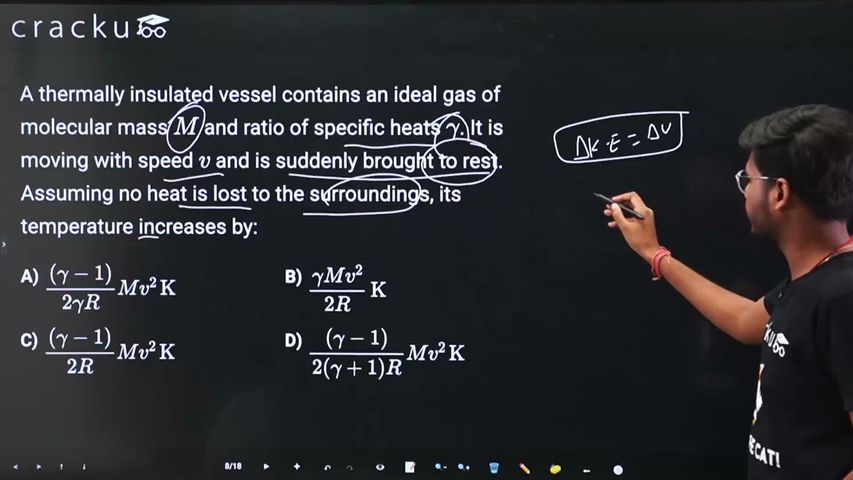 cracku
A thermally insulated vessel contains an ideal gas of
molecular mass M and ratio of specific heats γ. It is
moving with speed v and is suddenly brought to rest.
Assuming no heat is lost to the surroundings, its
temperature increases by:
ΔK.E = ΔU
A) (γ − 1)/2γR Mv² K
B) γMv²/2R K
C) (γ − 1)/2R Mv² K
D) (γ − 1)/2(γ + 1)R Mv² K
8/18